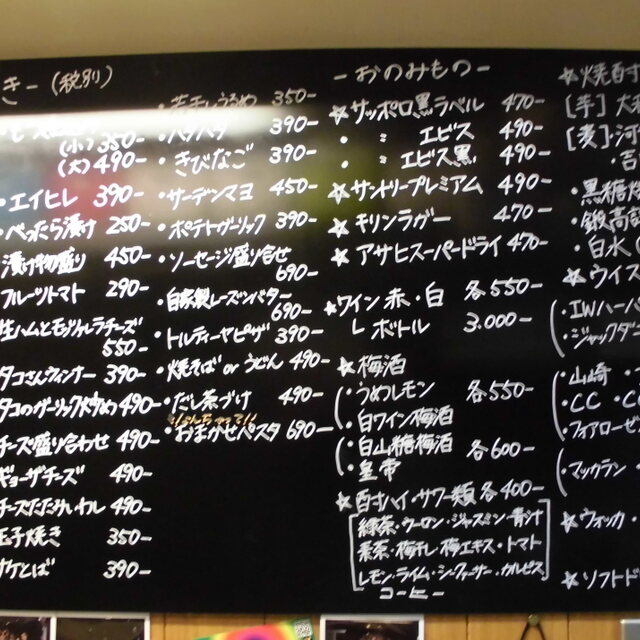 き－(税別)
(小)350-
(大)490-
・エイヒレ 390-
・べったら漬け 250-
漬け物盛り 450-
フルーツトマト 290-
生ハムとモッツァレラチーズ
550-
タコさんウィンナー 390-
タコのガーリック炒め 490-
チーズ盛り合わせ 490-
ギョーザチーズ 490-
チーズたたみいわし 490-
玉子焼き 350-
サケとば 390-
350-
390-
・きびなご 390-
・サーデンマヨ 450-
・ポテトガーリック 390-
・ソーセージ盛り合せ
690-
・自家製レーズンバター
690-
・トルティーヤピザ 390-
・焼そば or うどん 490-
・だし茶づけ 490-
・おまかせパスタ 690-
－おのみもの－
☆サッポロ黒ラベル 470-
・〃 エビス 490-
・〃 エビス黒 490-
☆サントリープレミアム 490-
☆キリンラガー 470-
☆アサヒスーパードライ 470-
☆ワイン 赤・白 各550-
└ボトル 3.000-
☆梅酒
・うめレモン 各550-
・白ワイン梅酒
・白山糖梅酒 各600-
・皇帝
☆酎ハイ・サワー類 各400-
緑茶・ウーロン・ジャスミン・青汁
素茶・梅干し・梅エキス・トマト
レモン・ライム・シークァーサー・カルピス
コーヒー
☆焼酎
[芋]
[麦]
・黒糖
・鍛高
・白水
☆ウイス
・IWハーパ
・ジャックダニ
・山崎・
・CC・
・フォアローゼ
・マッカラン・
☆ウォッカ・
☆ソフトド